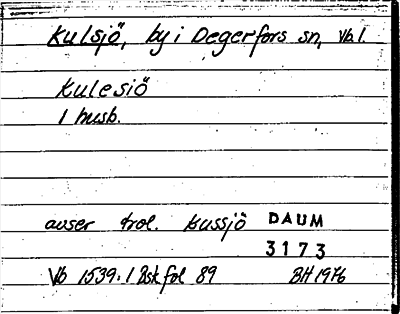 Kulsjö, by i Degerfors sn, Vb.l.
Kulesiö
1 husb.
avser trol. Kussjö DAUM
3173
Vb 1539:1 Bsk fol 89 BH 1976